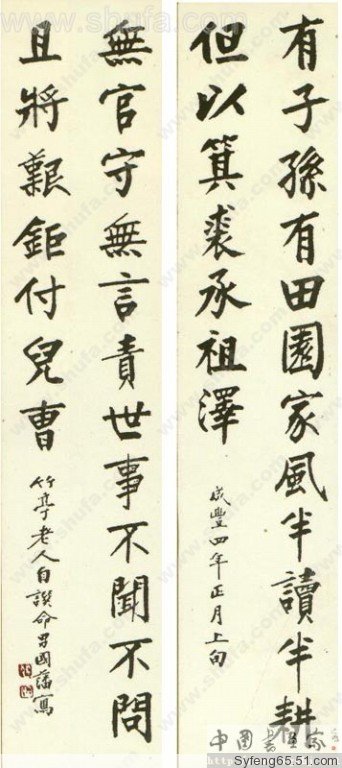 有子孫有田園家風半讀半耕
但以箕裘承祖澤
咸豐四年正月上旬
無官守無言責世事不聞不問
且將艱鉅付兒曹
竹亭老人自譔命男國藩寫
Syfeng65.51.com